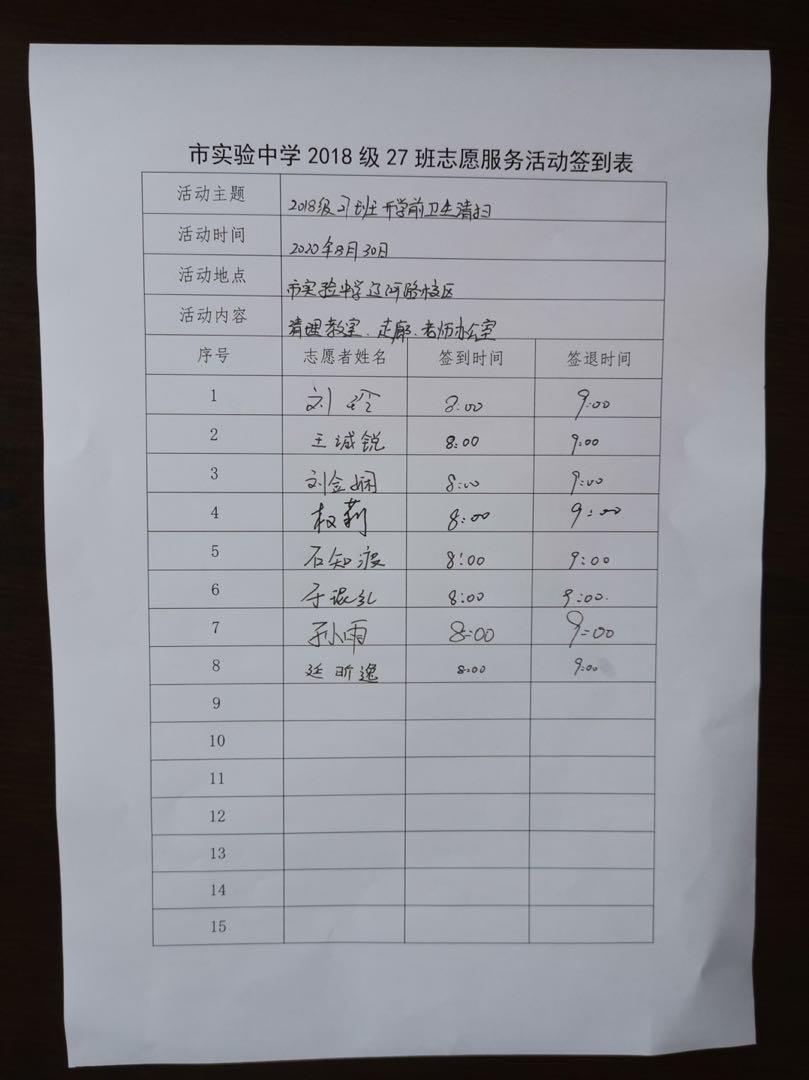 市实验中学2018级27班志愿服务活动签到表
活动主题 2018级27班开学前卫生清扫
活动时间 2020年8月30日
活动地点 市实验中学辽河路校区
活动内容 清理教室、走廊、老师办公室
序号 志愿者姓名 签到时间 签退时间
1 刘玲 8:00 9:00
2 王诚锐 8:00 9:00
3 刘金娴 8:00 9:00
4 权莉 8:00 9:00
5 石知波 8:00 9:00
6 于 8:00 9:00
7 孙雨 8:00 9:00
8 廷昕逸 8:00 9:00
9
10
11
12
13
14
15